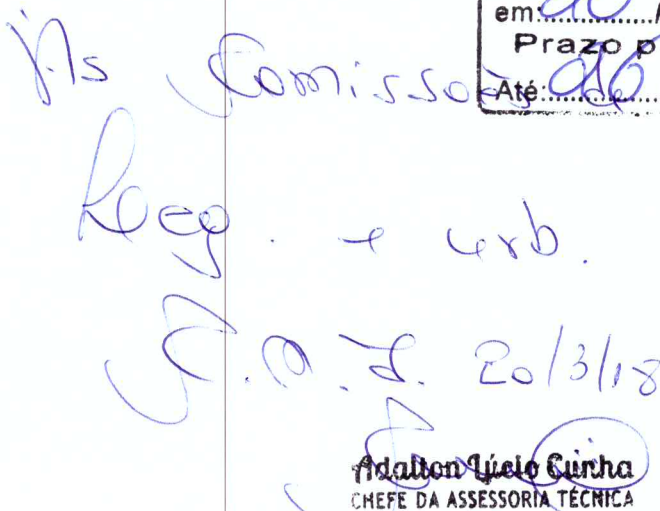 em:
Prazo p
Até: 06
Às Comissões de
Leg. e urb.
20/3/18
Adalton Lúcio Cunha
CHEFE DA ASSESSORIA TÉCNICA